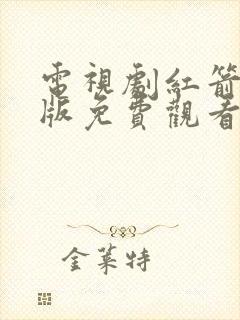 電視劇紅箭
版免費觀看
金萊特